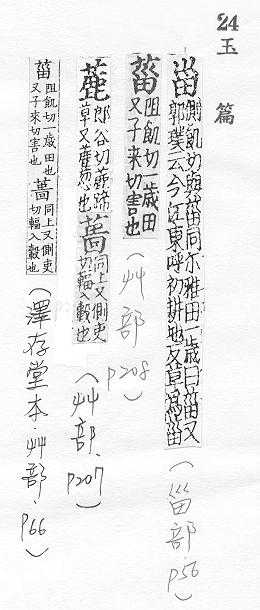 24
玉篇
甾 側飢切與菑同尒雅田一歲曰菑又
郭璞云今江東呼初耕地反草爲菑（甾部.p56）
菑 阻飢切一歲田
又子來切害也（艸部 p208）
蔍 郎谷切蔍蹄
草又蔍葱也
同上又側吏
切輻入轂也（艸部.p207）
菑 阻飢切一歲田也
又子來切害也
同上又側吏
切輻入轂也（澤存堂本.艸部.p66）